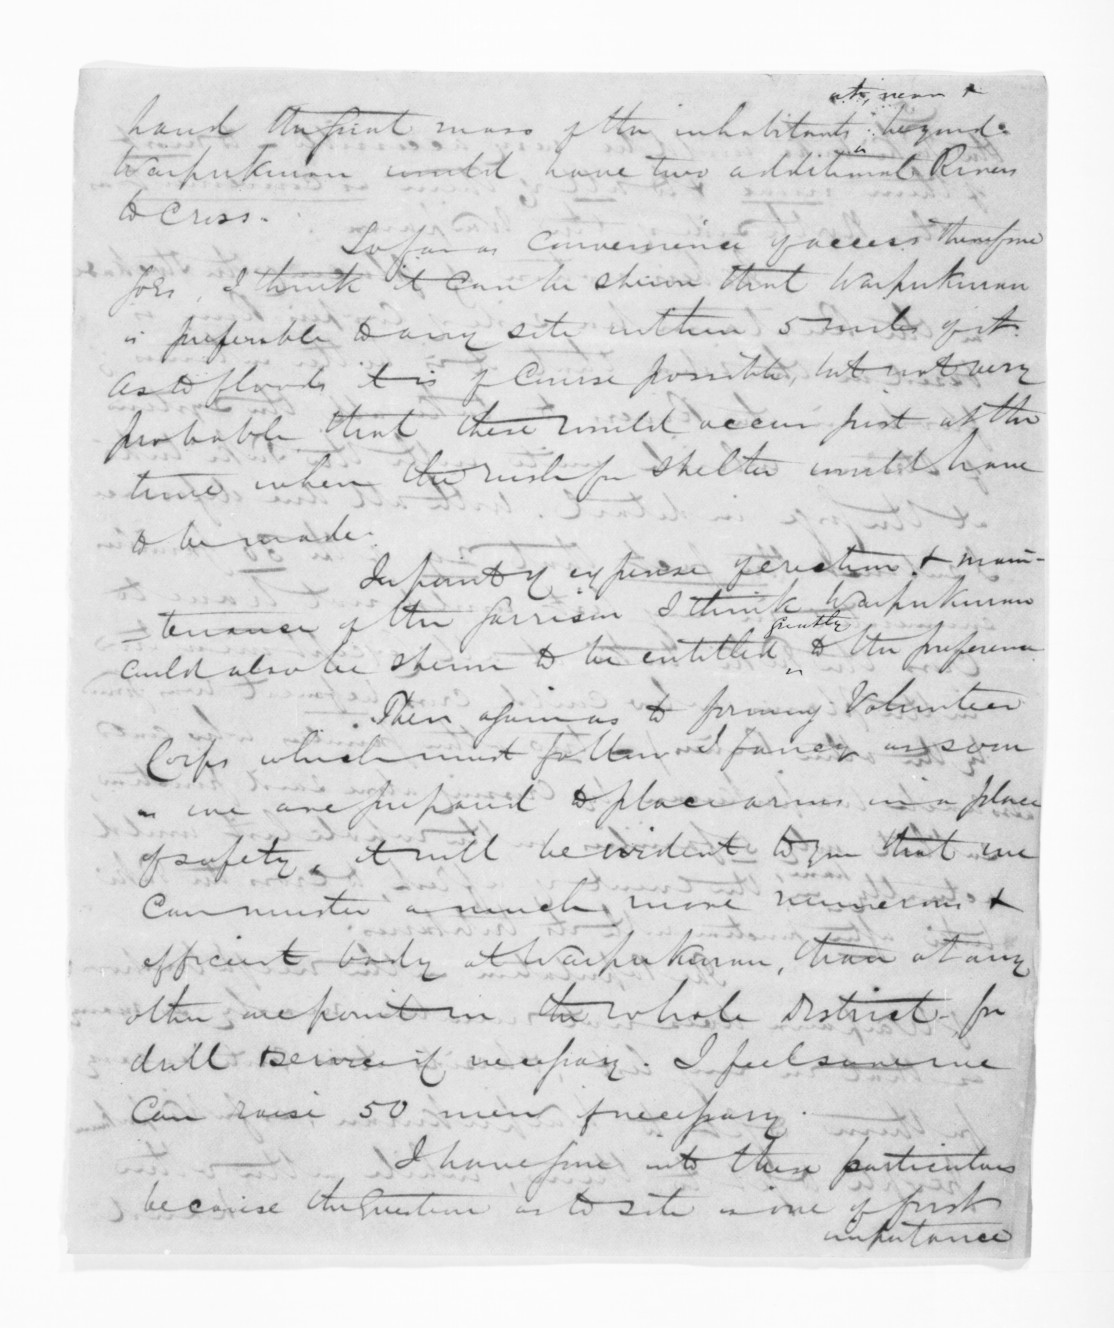 at, near &
hand the great mass of the inhabitants beyond
Waipukurau would have two additional Rivers
to cross.
So far as convenience of access therefore
goes, I think it can be shown that Waipukurau
is preferable to any site within 5 miles of it.
As to floods it is of course possible, but not very
probable that these would occur just at the
time when the rush for shelter would have
to be made.
In point of expense of erection & main-
=tenance of the Garrison I think Waipukurau
greatly
could also be shown to be entitled to the preference
Then again as to forming Volunteer
Corps which must follow I fancy as soon
as we are prepared to place arms in a place
of safety, it will be evident to you that we
can muster a much more numerous &
efficient body at Waipukurau, than at any
other one point in the whole District - for
drill & service if necessary. I feel sure we
can raise 50 men if necessary.
I have gone into these particulars
because the question as to site is one of first
importance